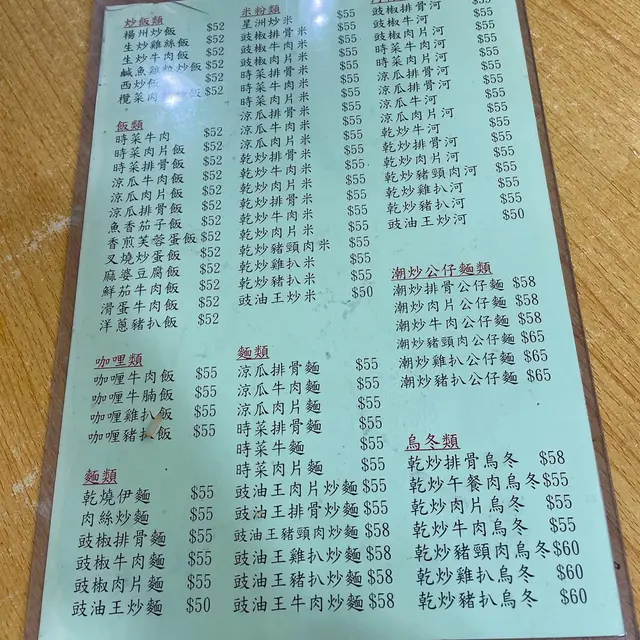 炒飯類
揚州炒飯 $52
生炒雞絲飯 $52
生炒牛肉飯 $52
鹹魚雞粒炒飯 $52
西炒飯 $52
欖菜肉 炒飯 $52
飯類
時菜牛肉 $52
時菜肉片飯 $52
時菜排骨飯 $52
涼瓜牛肉飯 $52
涼瓜肉片飯 $52
涼瓜排骨飯 $52
魚香茄子飯 $52
香煎芙蓉蛋飯 $52
叉燒炒蛋飯 $52
麻婆豆腐飯 $52
鮮茄牛肉飯 $52
滑蛋牛肉飯 $52
洋蔥豬扒飯 $52
咖喱類
咖喱牛肉飯 $55
咖喱牛腩飯 $55
咖喱雞扒飯 $55
咖喱豬扒飯 $55
麵類
乾燒伊麵 $55
肉絲炒麵 $55
豉椒排骨麵 $55
豉椒牛肉麵 $55
豉椒肉片麵 $55
豉油王炒麵 $50
米粉類
星洲炒米 $55
豉椒排骨米 $55
豉椒牛肉米 $55
豉椒肉片米 $55
時菜排骨米 $55
時菜牛肉米 $55
時菜肉片米 $55
涼瓜排骨米 $55
涼瓜牛肉米 $55
涼瓜肉片米 $55
乾炒排骨米 $55
乾炒牛肉米 $55
乾炒肉片米 $55
乾炒排骨米 $55
乾炒牛肉米 $55
乾炒豬頸肉米 $55
乾炒雞扒米 $55
乾炒豬扒米 $55
豉油王炒米 $50
麵類
涼瓜排骨麵 $55
涼瓜牛肉麵 $55
涼瓜肉片麵 $55
時菜排骨麵 $55
時菜牛麵 $55
時菜肉片麵 $55
豉油王肉片炒麵 $55
豉油王排骨炒麵 $55
豉油王豬頸肉炒麵 $58
豉油王雞扒炒麵 $58
豉油王豬扒炒麵 $58
豉油王牛肉炒麵 $58
豉椒排骨河 $55
豉椒牛河 $55
豉椒肉片河 $55
時菜牛肉河 $55
時菜肉片河 $55
時菜排骨河 $55
涼瓜排骨河 $55
涼瓜牛河 $55
涼瓜肉片河 $55
乾炒牛河 $55
乾炒排骨河 $55
乾炒肉片河 $55
乾炒豬頸肉河 $55
乾炒雞扒河 $55
乾炒豬扒河 $55
豉油王炒河 $50
潮炒公仔麵類
潮炒排骨公仔麵 $58
潮炒肉片公仔麵 $58
潮炒牛肉公仔麵 $58
潮炒豬頸肉公仔麵 $65
潮炒雞扒公仔麵 $65
潮炒豬扒公仔麵 $65
烏冬類
乾炒排骨烏冬 $58
乾炒午餐肉烏冬 $55
乾炒肉片烏冬 $55
乾炒牛肉烏冬 $55
乾炒豬頸肉烏冬 $60
乾炒雞扒烏冬 $60
乾炒豬扒烏冬 $60